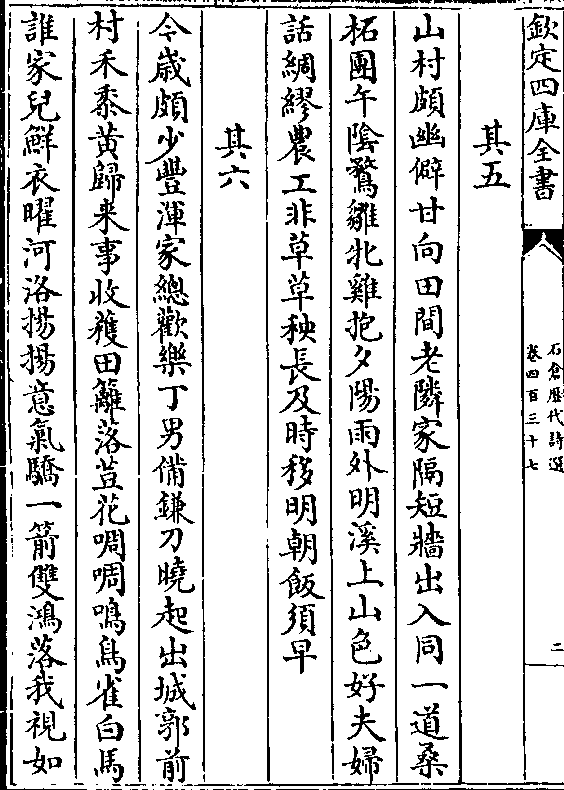 欽定四庫全書
石倉歴代詩選
卷四百三十七
二
其五
山村頗幽僻甘向田間老隣家隔短牆出入同一道桑
柘團午陰鶩雛牝雞抱夕陽雨外明溪上山色好夫婦
話綢繆農工非草草秧長及時移明朝飯須早
其六
今歳頗少豐渾家總歡樂丁男備鎌刀曉起出城郭前
村禾黍黄歸来事收穫田籬落荳花啁啁鳴鳥雀白馬
誰家兒鮮衣曜河洛揚揚意氣驕一箭雙鴻落我視如